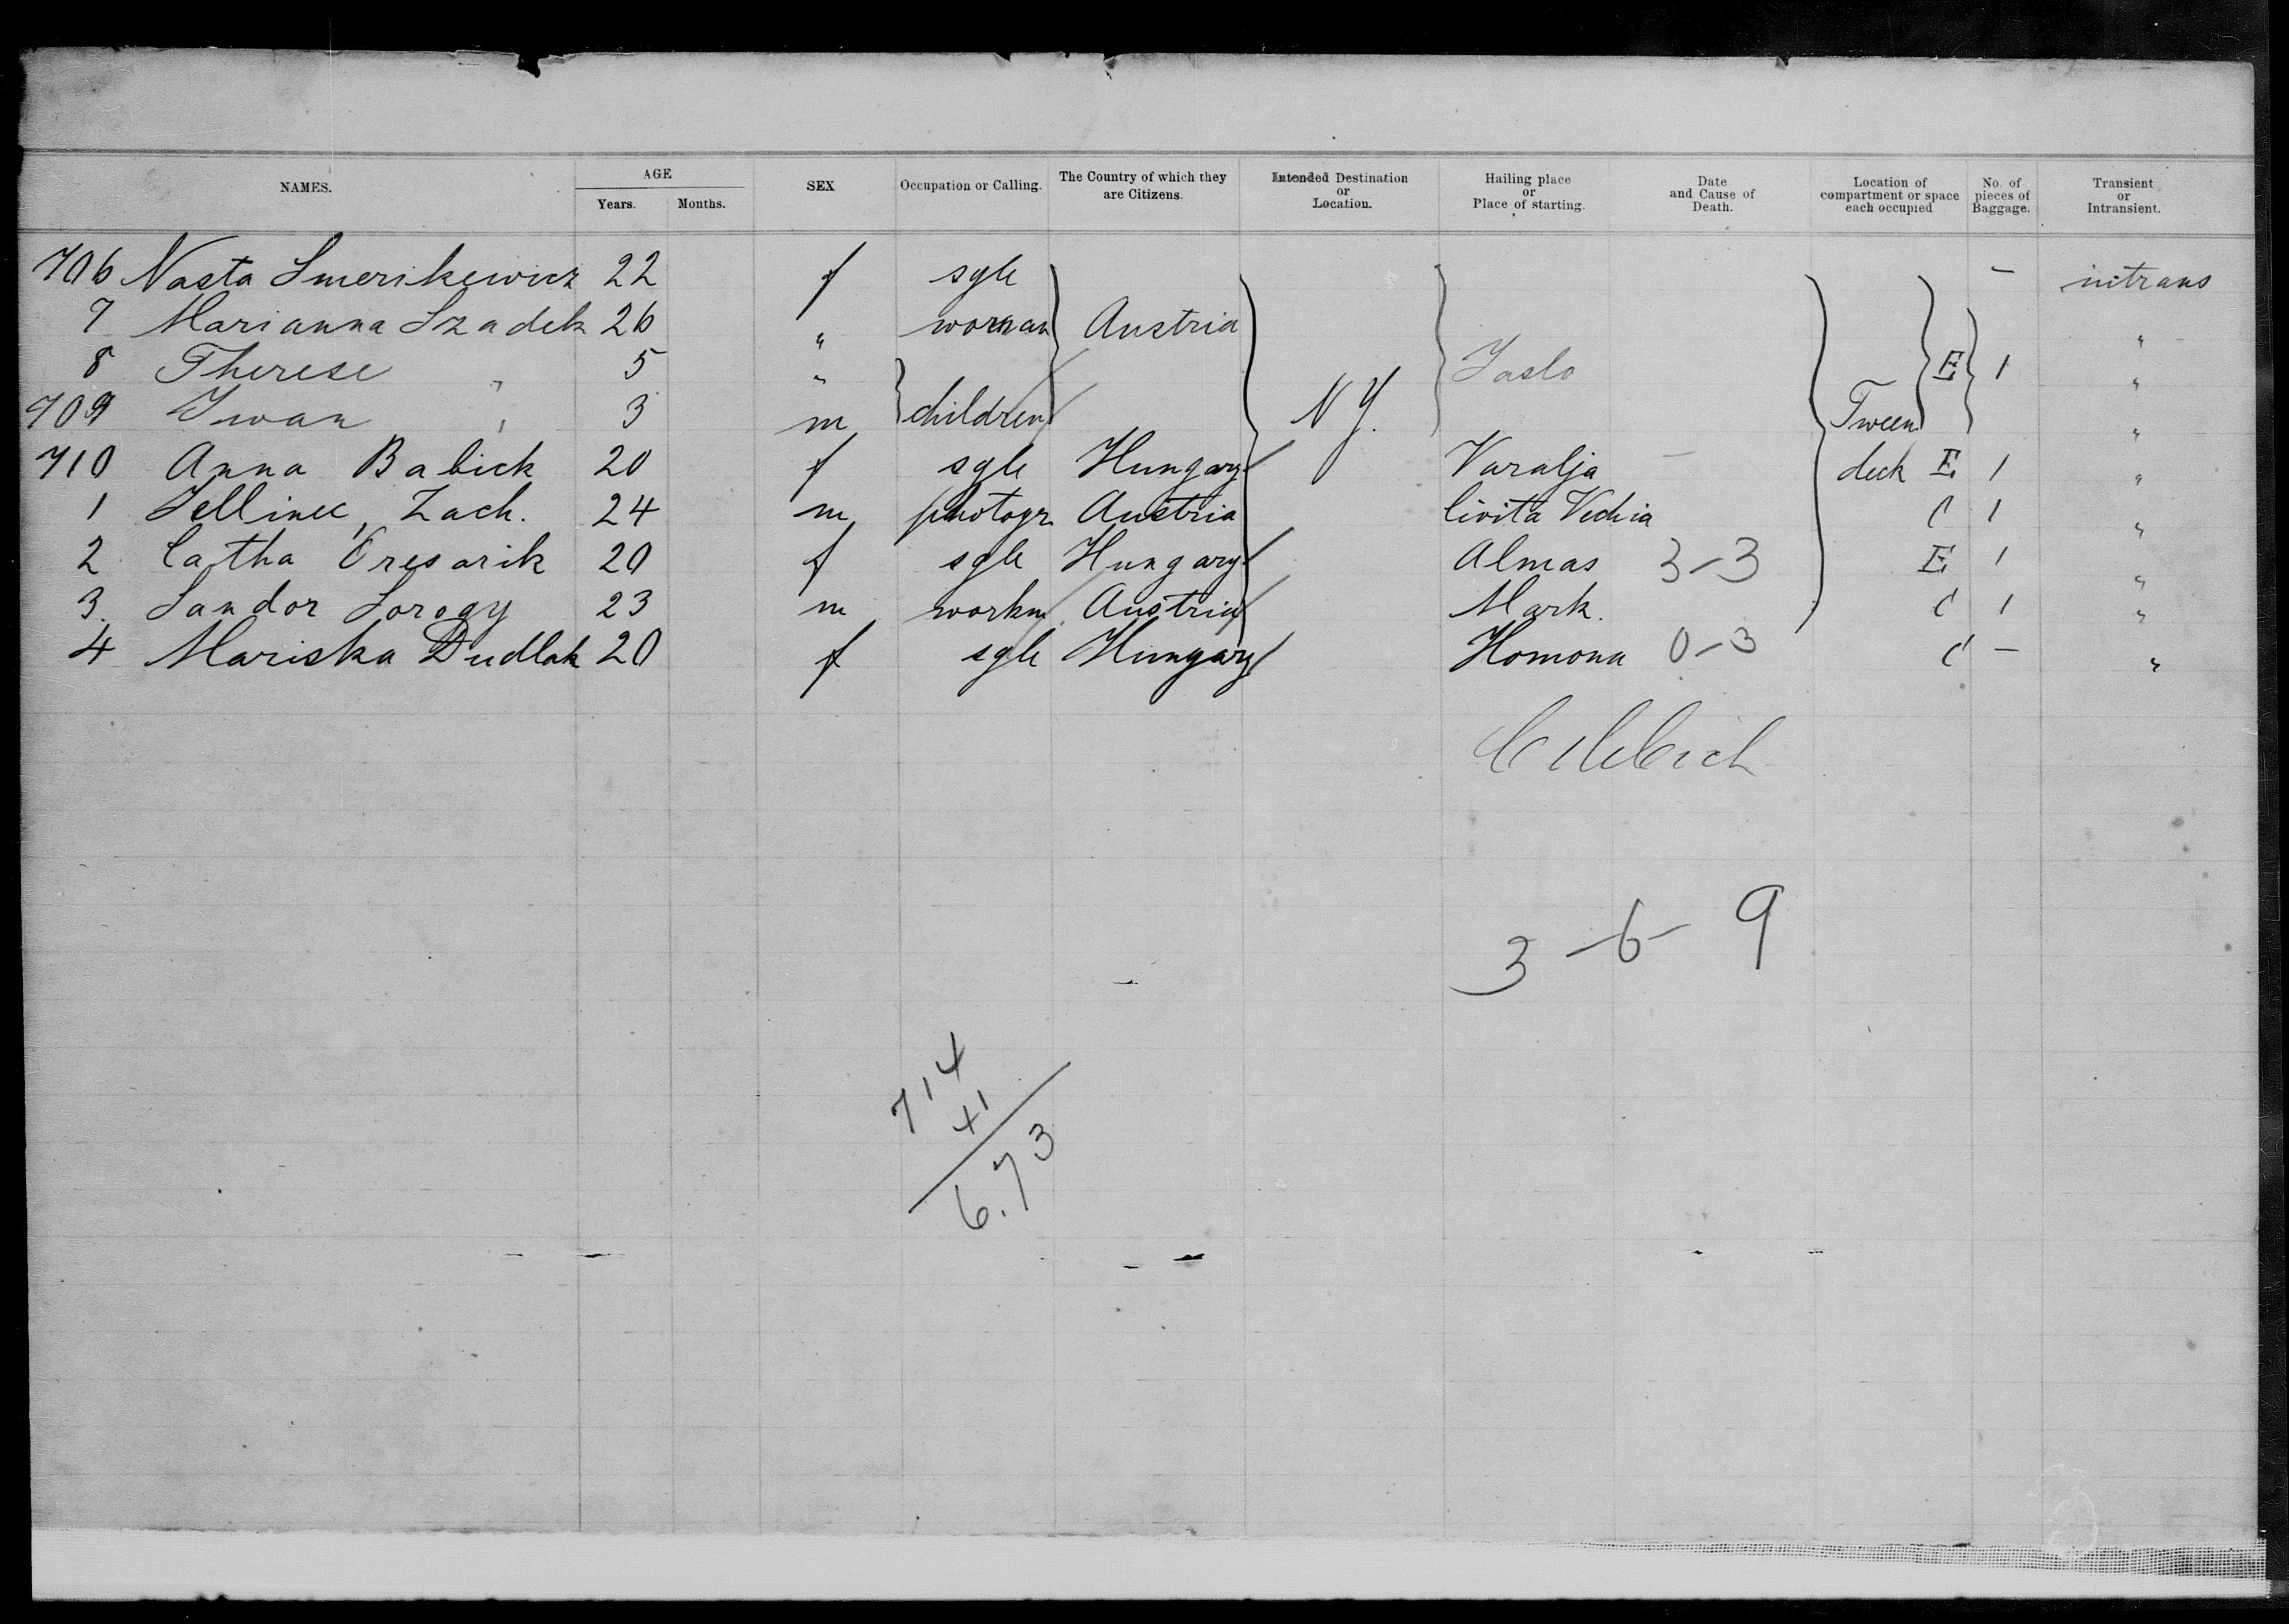 NAMES. AGE SEX Occupation or Calling. The Country of which they are Citizens. Intended Destination or Location. Hailing place or Place of starting. Date and Cause of Death. Location of compartment or space each occupied No. of pieces of Baggage. Transient or Intransient.
Years. Months.
706 Nasta Smerikewicz 22 f sgle - intrans
7 Marianna Szadek 26 " woman Austria "
8 Therese " 5 " Jaslo E 1 "
709 Iwan " 3 m children N Y. Tween "
710 Anna Babick 20 f sgle Hungary Varalja - deck E 1 "
1 Jellinec, Zach. 24 m photogr Austria Civita Vechia C 1 "
2 Catha Oresarik 20 f sgle Hungary Almas 3-3 E 1 "
3. Sandor Sorogy 23 m workm. Austria Mark. C 1 "
4 Mariska Dudlak 20 f sgle Hungary Homona 0-3 C - "
3-6-9
714
41
6.73